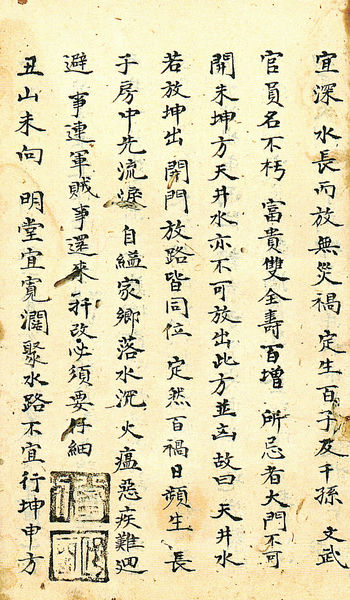 宜深水長而放無災禍 定生百子及千孫 文武
官員名不朽 富貴雙全壽百增 所忌者大門不可
開未坤方天井水亦不可放出此方並凶故曰 天井水
若放坤出 開門放路皆同位 定然百禍日頻生 長
子房中先流淚 自縊家鄉落水沉 火瘟惡疾難迴
避 事連軍賊事還來 改必須要仔細
丑山未向 明堂宜寬濶聚水路不宜行坤申方